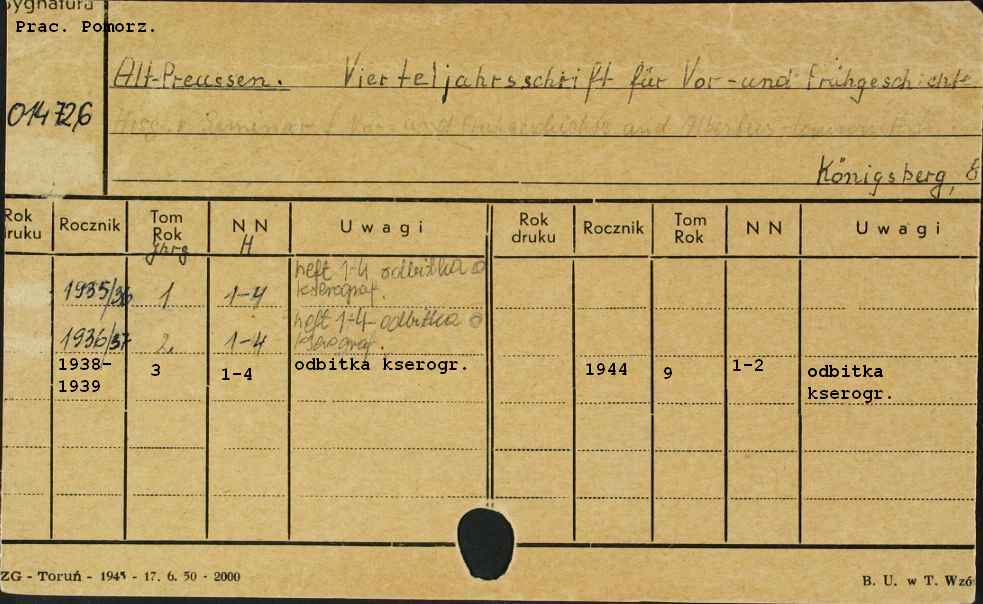 Sygnatura
Prac. Pomorz.
Alt-Preussen. Vierteljahrsschrift für Vor-und Frühgeschichte
014726
Seminar f. Vor- und Frühgeschichte
Königsberg,
Rok druku Rocznik Tom Rok Jhrg N N H Uwagi Rok druku Rocznik Tom Rok N N Uwagi
1935/36 1 1-4 heft 1-4 odbitka
kserograf.
1936/37 2. 1-4 heft 1-4 odbitka
kserograf.
1938-1939 3 1-4 odbitka kserogr. 1944 9 1-2 odbitka kserogr.
ZG - Toruń - 1945 - 17. 6. 50 - 2000 B. U. w T. Wzó